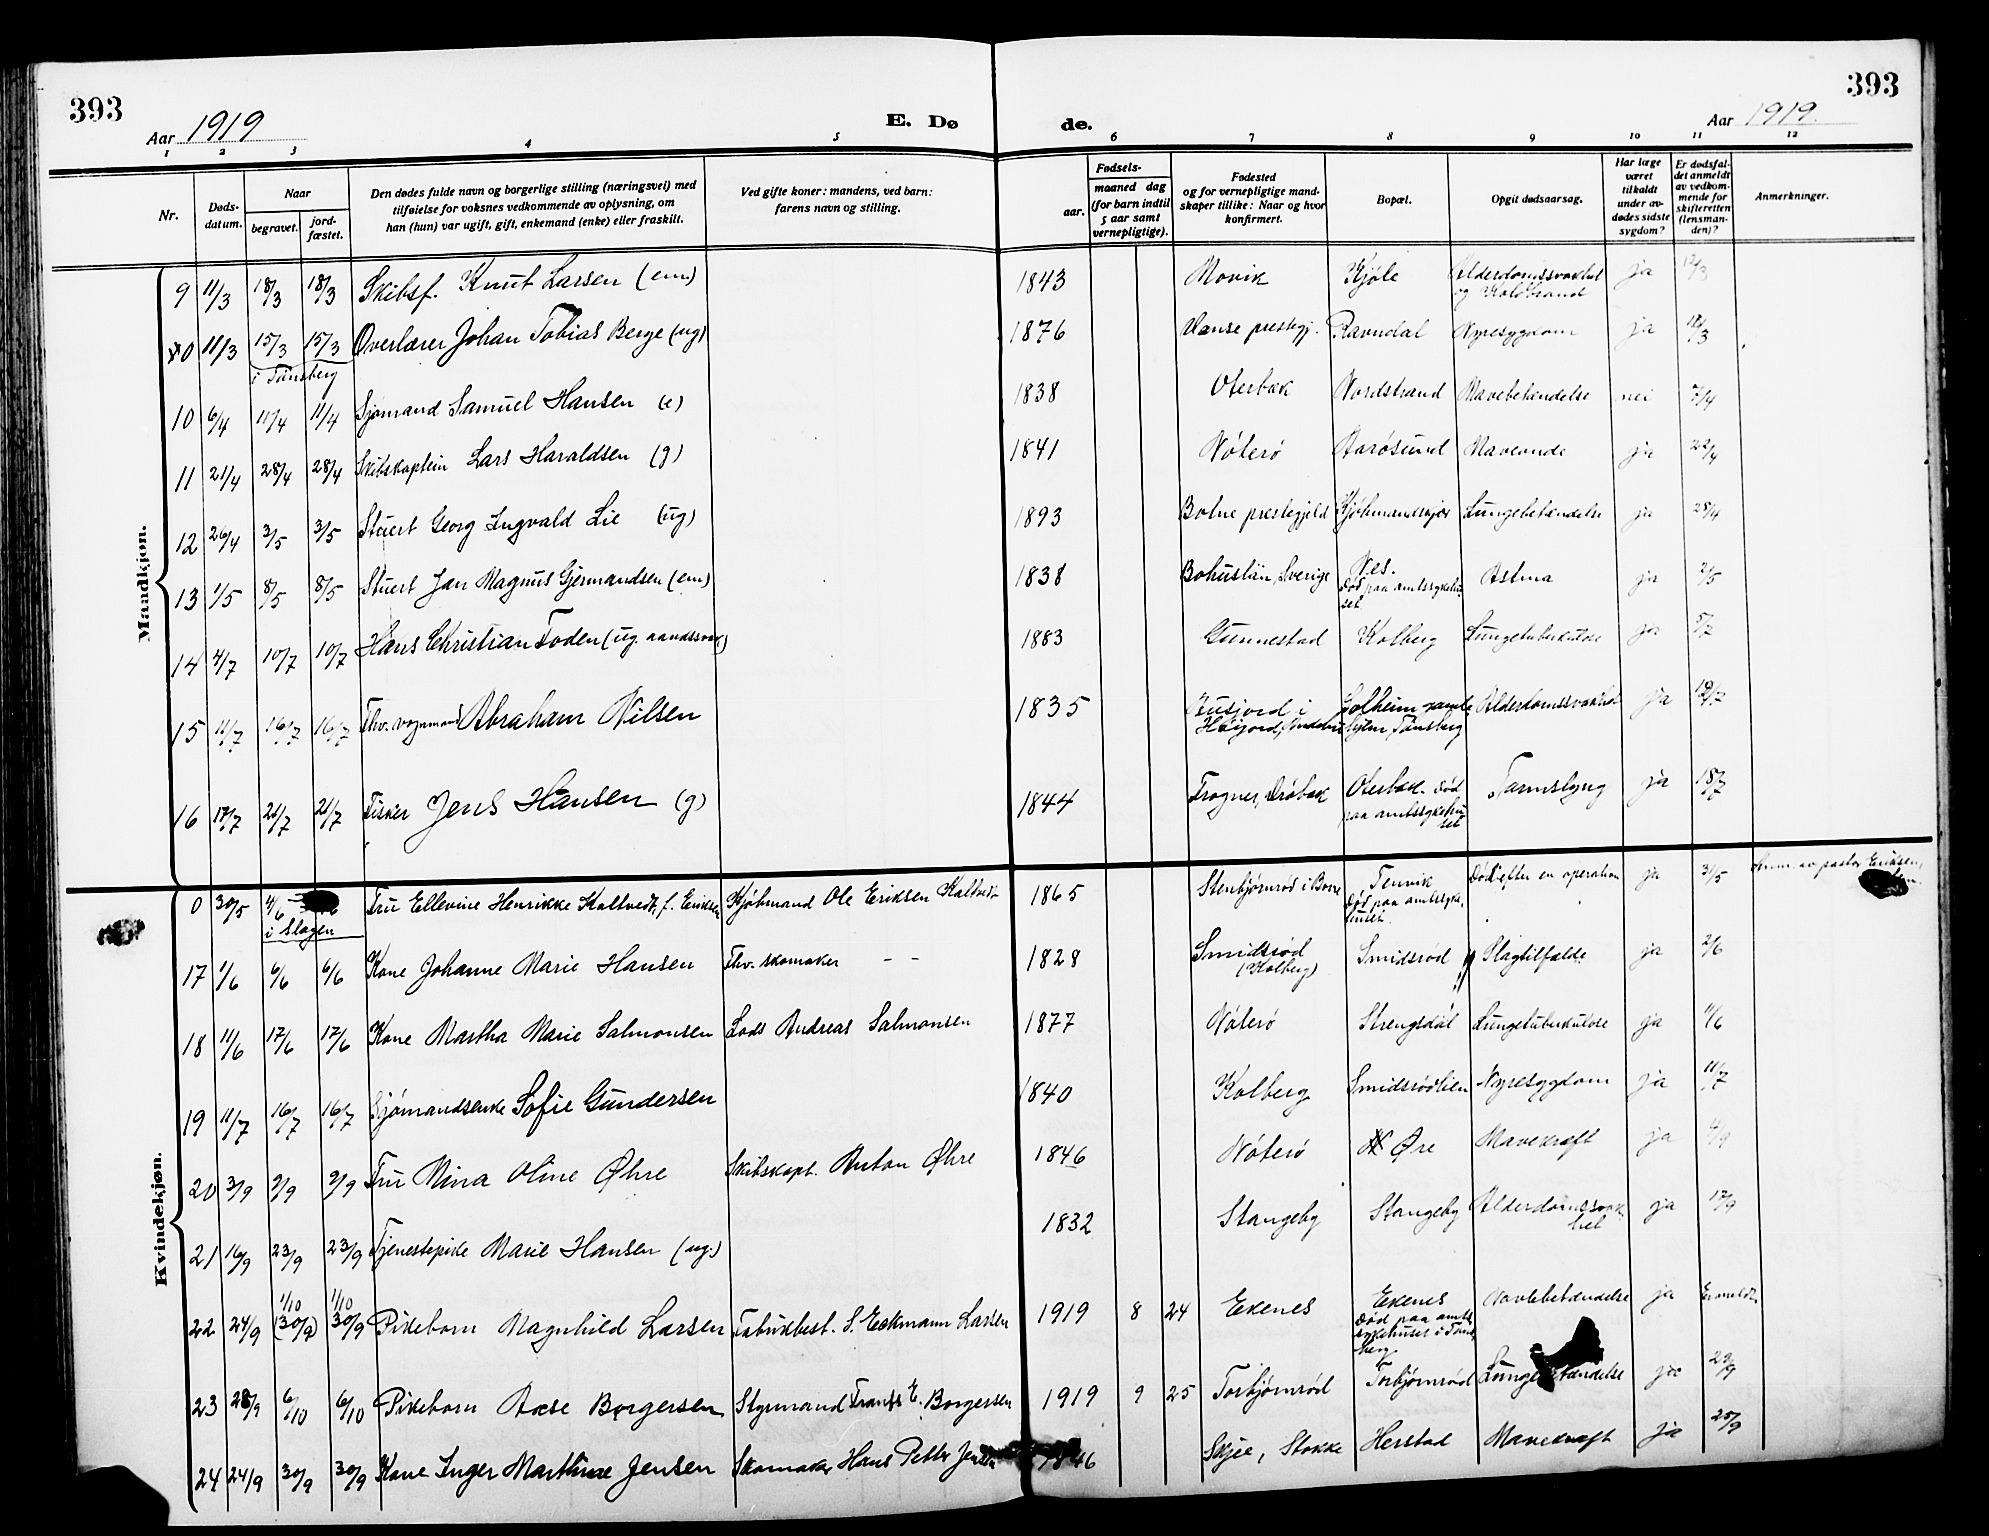 393
393
Aar 1919
E. Dø
de.
Aar 1919.
1 2 3 4 5 6 7 8 9 10 11 12
Nr.
Døds-
datum.
Naar
begravet.
jord-
fæstet.
Den dødes fulde navn og borgerlige stilling (næringsvei) med
tilføielse for voksnes vedkommende av oplysning, om
han (hun) var ugift, gift, enkemand (enke) eller fraskilt.
Ved gifte koner: mandens, ved barn:
farens navn og stilling.
Fødsels-
aar.
maaned dag
(for barn indtil
5 aar samt
vernepligtige).
Fødested
og for vernepligtige mand-
skaper tillike: Naar og hvor
konfirmert.
Bopæl.
Opgit dødsaarsag.
Har læge
været
tilkaldt
under av-
dødes sidste
sygdom?
Er dødsfal-
det anmeldt
av vedkom-
mende for
skifteretten
(lensman-
den)?
Anmerkninger.
Mandkjøn.
9 11/3 18/3 18/3 Skibsf. Knut Larsen (em) 1843 Movik Kjøle Alderdomssvakhet ja 12/3
og Koldbrand
0 11/3 15/3 15/3 Overlærer Johan Tobias Berge (ug) 1876 Vanse prestegj. Ravndal Nyresygdom ja 12/3
i Tønsberg
10 6/4 11/4 11/4 Sjømand Samuel Hansen (e) 1838 Oterbæk Nordstrand Mavebetændelse nei 7/4
11 21/4 28/4 28/4 Skibskaptein Lars Haraldsen (g) 1841 Nøterø Aarøsund Maveonde ja 22/4
12 26/4 3/5 3/5 Stuert Georg Ingvald Lie (ug) 1893 Botne prestegjeld Kjøbmandskjær Lungebetændelse ja 28/4
13 1/5 8/5 8/5 Stuert Jan Magnus Gjermandsen (em) 1838 Bohuslän, Sverige Nes. Astma ja 2/5
død paa amtssykehu-
set
14 4/7 10/7 10/7 Hans Christian Foden (ug. aandssvak) 1883 Gunnestad Kolberg Lungetuberkulose ja 5/7
15 11/7 16/7 16/7 Fhv. vognmand Abraham Nilsen 1835 i Solheim gamle- Alderdomssvakhet ja 12/7
Høijord, hjem, Tønsberg
16 17/7 21/7 21/7 Fisker Jens Hansen (g) 1844 Frogner, Drøbak Oterbæk. Død Tarmslyng ja 18/7
paa amtssykehu-
set
Kvindekjøn.
0 30/5 4/6 Fru Ellevine Henrikke Kaltvedt, f. Eriksen Kjøbmand Ole Eriksen Kaltvedt 1865 Stenbjørnrød i Borre Tenvik Død efter en operation ja 3/5 av pastor Eriksen,
i Slagen død paa amtssyke-
huset.
17 1/6 6/6 6/6 Kone Johanne Marie Hansen Fhv. skomaker – – 1828 Smidsrød Smidsrød Slagtilfælde ja 2/6
(Kolberg)
18 11/6 17/6 17/6 Kone Martha Marie Salmonsen Lods Andreas Salmonsen 1877 Nøterø Strengsdal Lungetuberkulose ja 11/6
19 11/7 16/7 16/7 Sjømandsenke Sofie Gundersen 1840 Kolberg Smidsrødlien Nyresygdom ja 11/7
20 3/9 9/9 9/9 Fru Mina Oline Øhre Skibskapt. Anton Øhre 1846 Nøterø Øre Mavekræft ja 4/9
21 16/9 23/9 23/9 Tjenestepike Marie Hansen (ug.) 1832 Stangeby Stangeby Alderdomssvak- ja 17/9
het
22 24/9 1/10 (30/9) 1/10 30/9 Pikebarn Magnhild Larsen Fabrikbest. S. Eckmann Larsen 1919 8 24 Ekenes Ekenes Navlebetændelse ja
død paa amts-
sykehuset i Tøns-
berg
23 28/9 6/10 6/10 Pikebarn Aase Borgersen Styrmand Frants E. Borgersen 1919 9 25 Torbjørnrød Torbjørnrød Lungebetændelse ja 29/9
24 24/9 30/9 30/9 Kone Inger Marthine Jensen Skomaker Hans Petter Jensen 1846 Skjee, Stokke Herstad Mavekræft ja 25/9